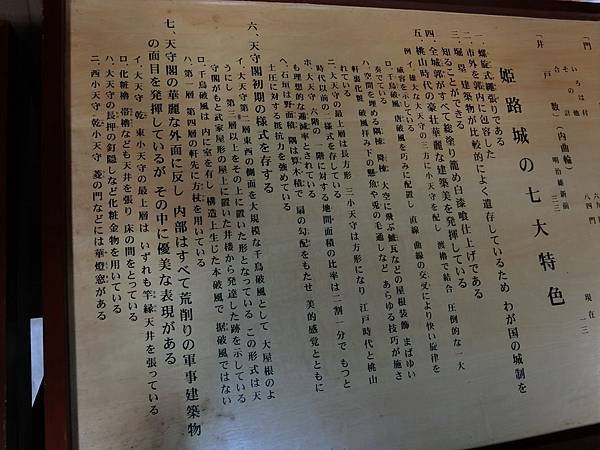 「門
いろは付
その他
計
現在 一三
八四門
「井戸数」（内曲輪）
明治維新前
三三
姫路城の七大特色
一、螺旋式縄張りである
二、市外を郭内に包容した
三、堀 塁 建築物が比較的によく遺存しているため わが国の城制を
知ることができる
四、全城郭がすべて総塗り籠め白漆喰仕上げである
五、桃山時代の豪壮華麗な建築美を発揮している
例 イ、雄大な大天守の三方に小天守を配し 渡櫓で結合 圧倒的な一大
威容を示している
ロ、千鳥破風 唐破風を巧みに配置し 直線 曲線の交叉により快い旋律を
奏でている
ハ、空間を埋める隅棟 降棟 大空に飛ぶ鯱瓦などの屋根装飾 まばゆい
軒裏化粧 破風拝み下の懸魚や兎の毛通しなど あらゆる技巧が施さ
れている
ニ、大天守の最上層は長方形 三小天守は方形になり 江戸時代と桃山
時代以前の二様式を存している
ホ、大天守 六階の 一階に対する地間面積の比率は二割一分で もっと
も理想的な逓減率とされている
ヘ、石垣は野面積 隅は算木積で 扇の勾配をもたせ 美的感覚とともに
土圧に対する抵抗力を強めている
六、天守閣初期の様式を存する
イ、大天守 第二層東西の側面を大規模な千鳥破風として 大屋根のよ
うにし 第三層以上をその上に置いた形となっている この形式は天
守閣がもと武家屋形の屋上に置いた井楼から発達した跡を示している
ロ、千鳥破風は 内に室を有し 構造上生じた本破風で 据破風ではない
ハ、第一層 第四層の軒先に方杖を用いている
七、天守閣の華麗な外面に反し 内部はすべて荒削りの軍事建築物
の面目を発揮しているが その中に優美な表現がある
イ、大天守 乾 東小天守の最上層は いずれも竿縁天井を張っている
ロ、化粧櫓 帯櫓なども天井を張り 床の間をとっている
ハ、大天守の長押の釘隠しなど化粧金物を用いている
ニ、西小天守 乾小天守 菱の門などには華燈窓がある